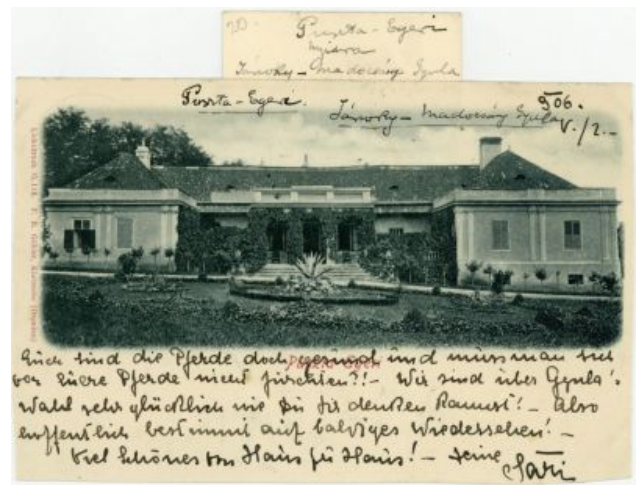 20.
Puszta-Egeri
nyisra
Jánoky-Madocsány Gyula
Puszta-Egeri.
906.
Jánoky-Madocsány Gyula
V./2.-
Puszta Egeri
Euch sind die Pferde doch gesund und muss man sich
vor Euere Pferde nicht fürchten?!- Wir sind über Gyula's
Wahl sehr glücklich wie Du Dir denken kannst!- Also
hoffentlich bestimmt auf baldiges Wiedersehen!-
Viel Schönes von Haus zu Haus!- Deine
Sári